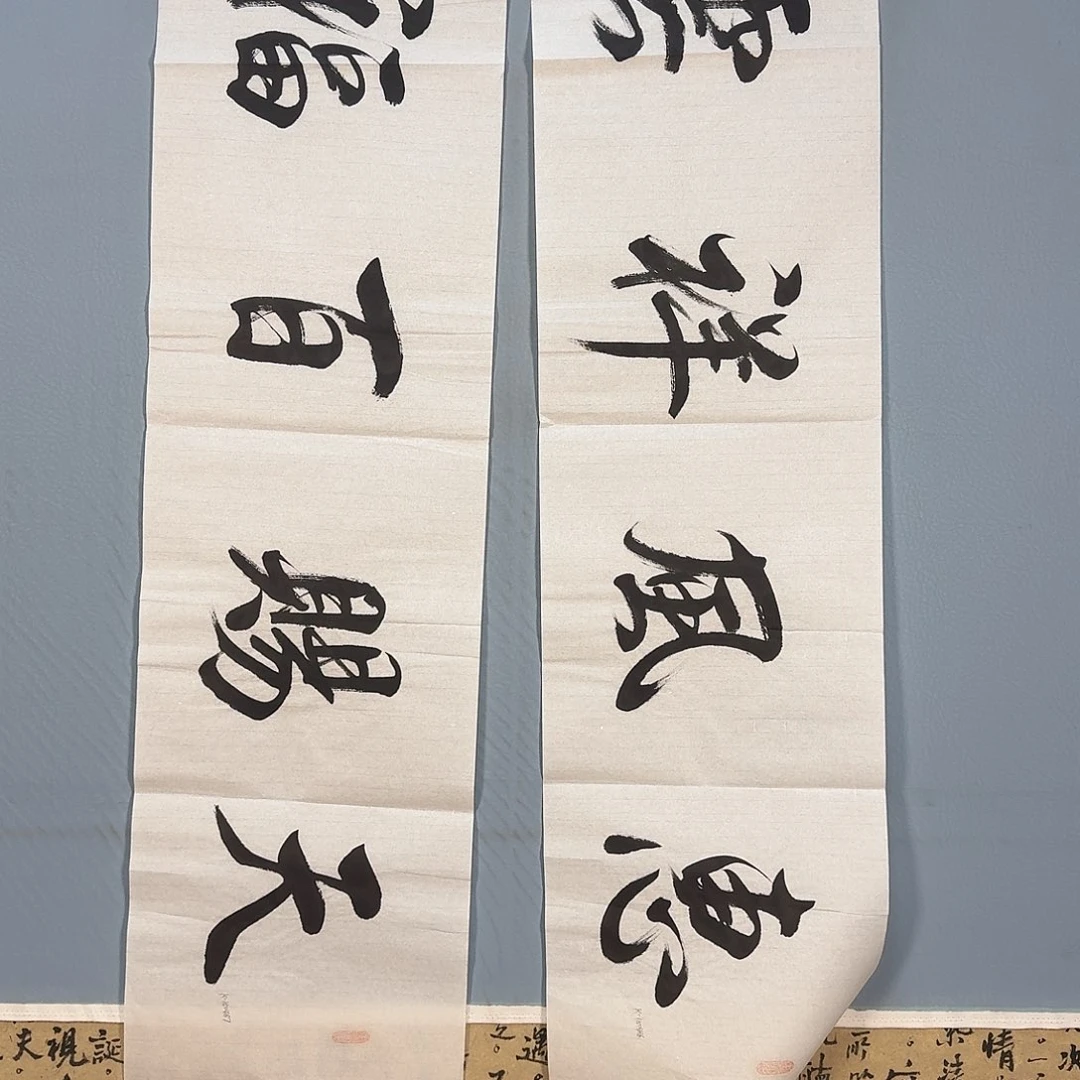 惠風祥雲
天賜百福
情
遇
誕。
視
夫